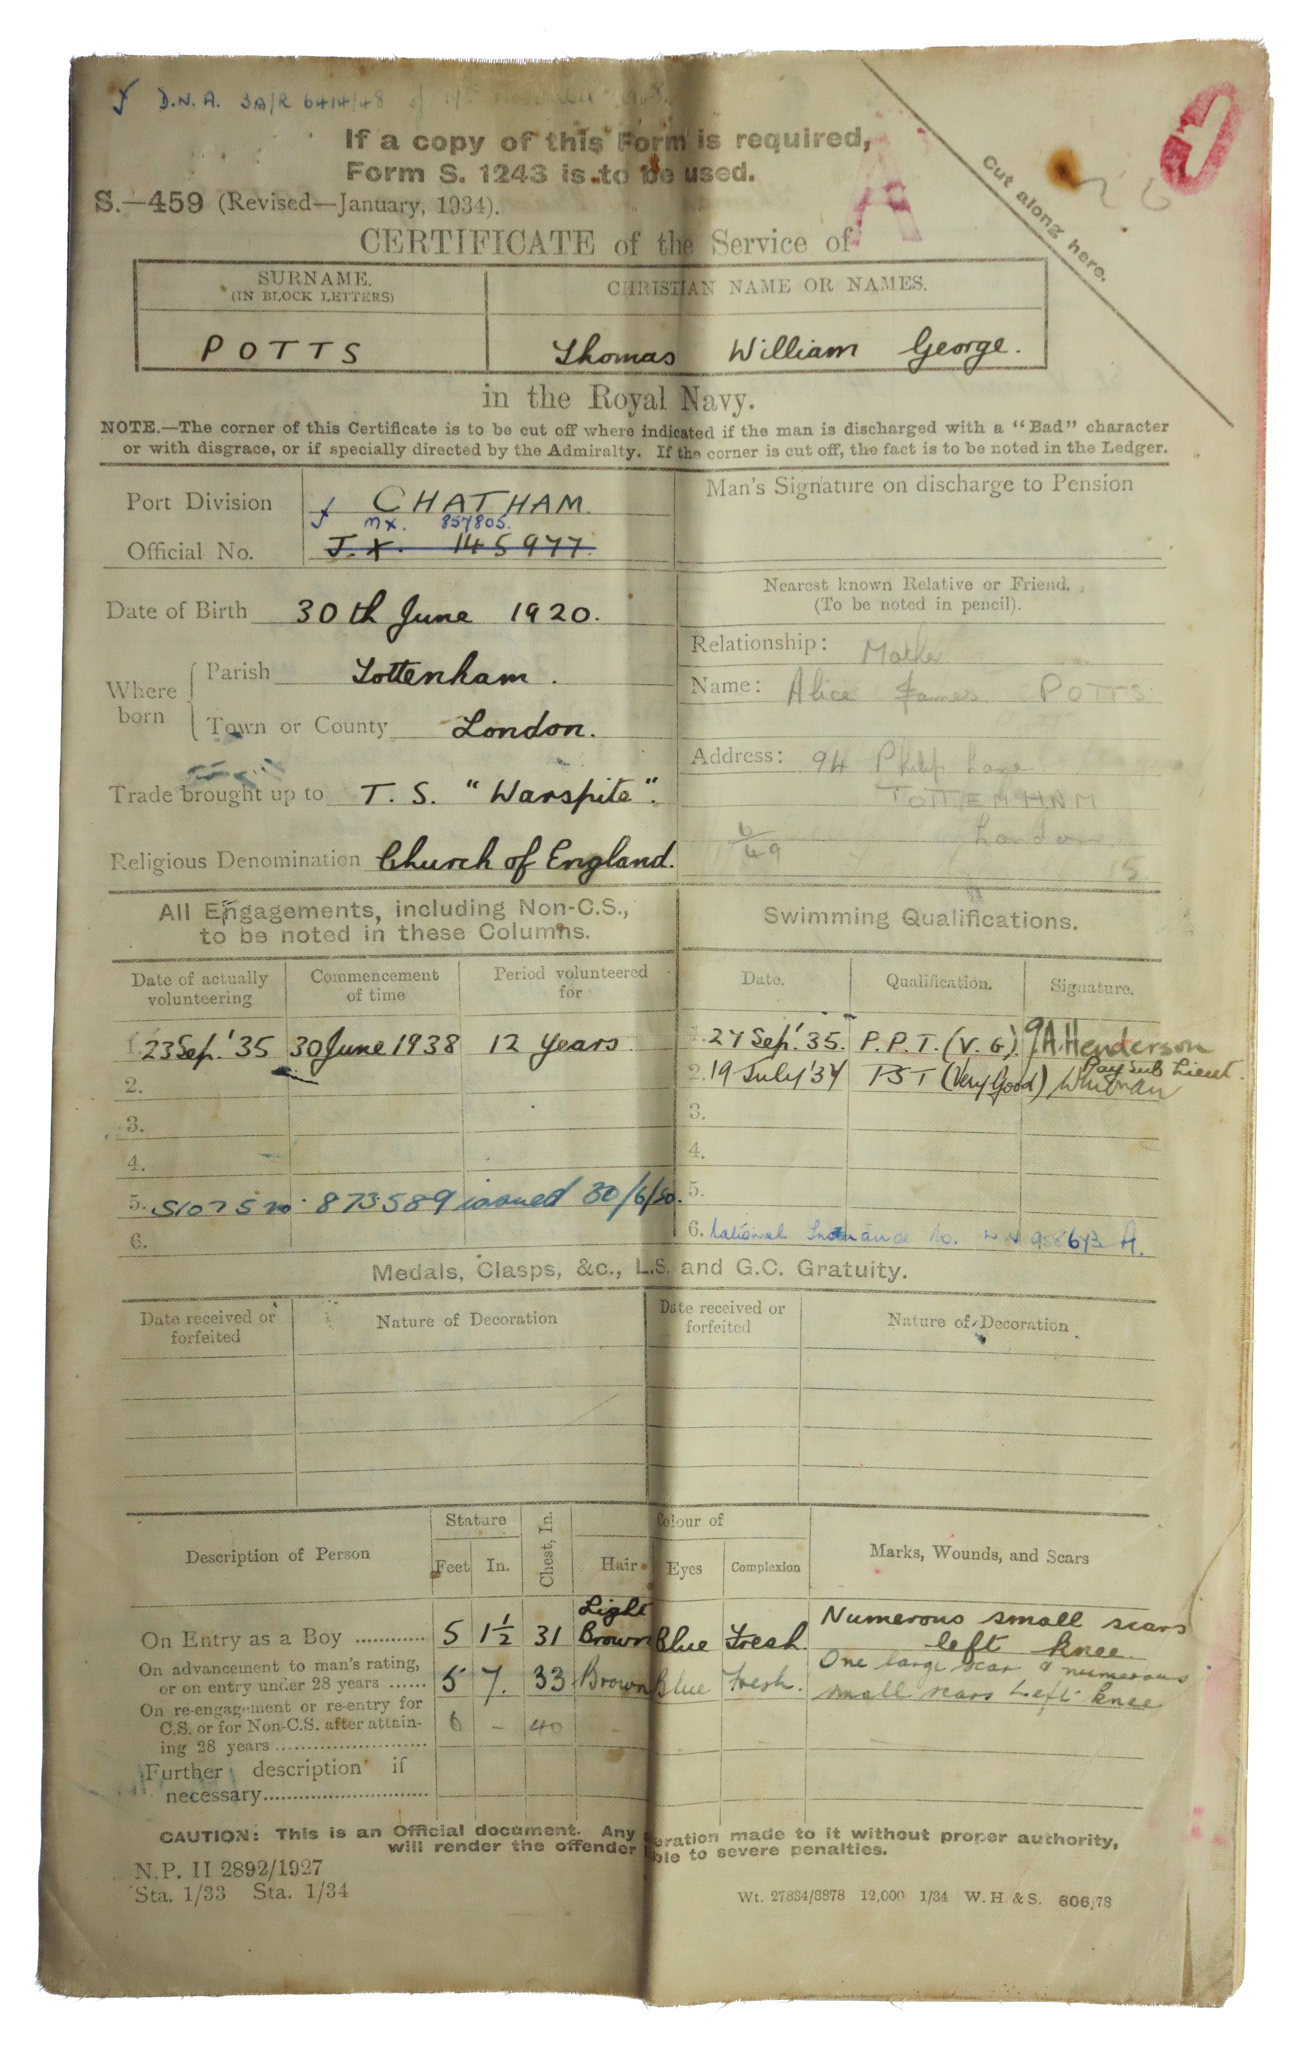 D.N.A. 3A/R 6414/48 of
If a copy of this Form is required,
Form S. 1243 is to be used.
Cut along here.
S.—459 (Revised—January, 1934).
CERTIFICATE of the Service of
SURNAME. (IN BLOCK LETTERS)
CHRISTIAN NAME OR NAMES.
POTTS
Thomas William George.
in the Royal Navy.
NOTE.—The corner of this Certificate is to be cut off where indicated if the man is discharged with a "Bad" character
or with disgrace, or if specially directed by the Admiralty. If the corner is cut off, the fact is to be noted in the Ledger.
Port Division CHATHAM.
Man's Signature on discharge to Pension
MX. 857805.
Official No. J.X. 145977
Nearest known Relative or Friend.
(To be noted in pencil).
Date of Birth 30th June 1920.
Relationship: Mother
Where born
Parish Tottenham.
Name: Alice James POTTS
Town or County London.
Address: 94 Philip Lane
TOTTENHAM
London
15
6/49
Trade brought up to T.S. "Warspite".
Religious Denomination Church of England.
All Engagements, including Non-C.S.,
to be noted in these Columns.
Swimming Qualifications.
Date of actually volunteering
Commencement of time
Period volunteered for
Date.
Qualification.
Signature.
1. 23 Sep. '35 30 June 1938 12 years
1. 27 Sep. '35. P.P.T. (V.G). J.A. Henderson
Pay Sub Lieut.
2.
2. 19 July '37 PST (Very Good)
3.
3.
4.
4.
5. S1075 no. 873589 issued 30/6/50.
5.
6.
6. National Insurance No. 958673 A.
Medals, Clasps, &c., L.S. and G.C. Gratuity.
Date received or forfeited
Nature of Decoration
Date received or forfeited
Nature of Decoration
Description of Person
Stature
Feet
In.
Chest, In.
Colour of
Hair
Eyes
Complexion
Marks, Wounds, and Scars
On Entry as a Boy ............ 5 1½ 31 Light Brown Blue Fresh Numerous small scars
left knee.
On advancement to man's rating,
or on entry under 28 years ...... 5 7. 33 Brown Blue Fresh. One large scar & numerous
small scars Left knee
On re-engagement or re-entry for
C.S. or for Non-C.S. after attain-
ing 28 years ........................ 6 - 40 -
Further description if
necessary..............................
CAUTION: This is an Official document. Any eration made to it without proper authority,
will render the offender ble to severe penalties.
N.P. II 2892/1927
Sta. 1/33 Sta. 1/34
Wt. 27834/8878 12,000 1/34 W. H. & S. 606/78